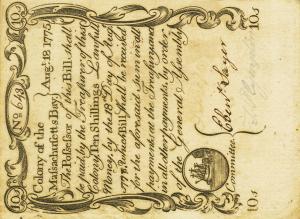 No 643
10s
10s
Colony of the
Massachusetts Bay
Augt. 18 1775
The Possessor of this Bill shall
be paid by the Treasurer of this
Colony Ten Shillings Lawfull
Money by the 18th Day of
1778 which Bill shall be received
for the aforesaid sum in all
payments at the Treasury and
in all other payments by order
of the General Assembly
Committee
10s
10s